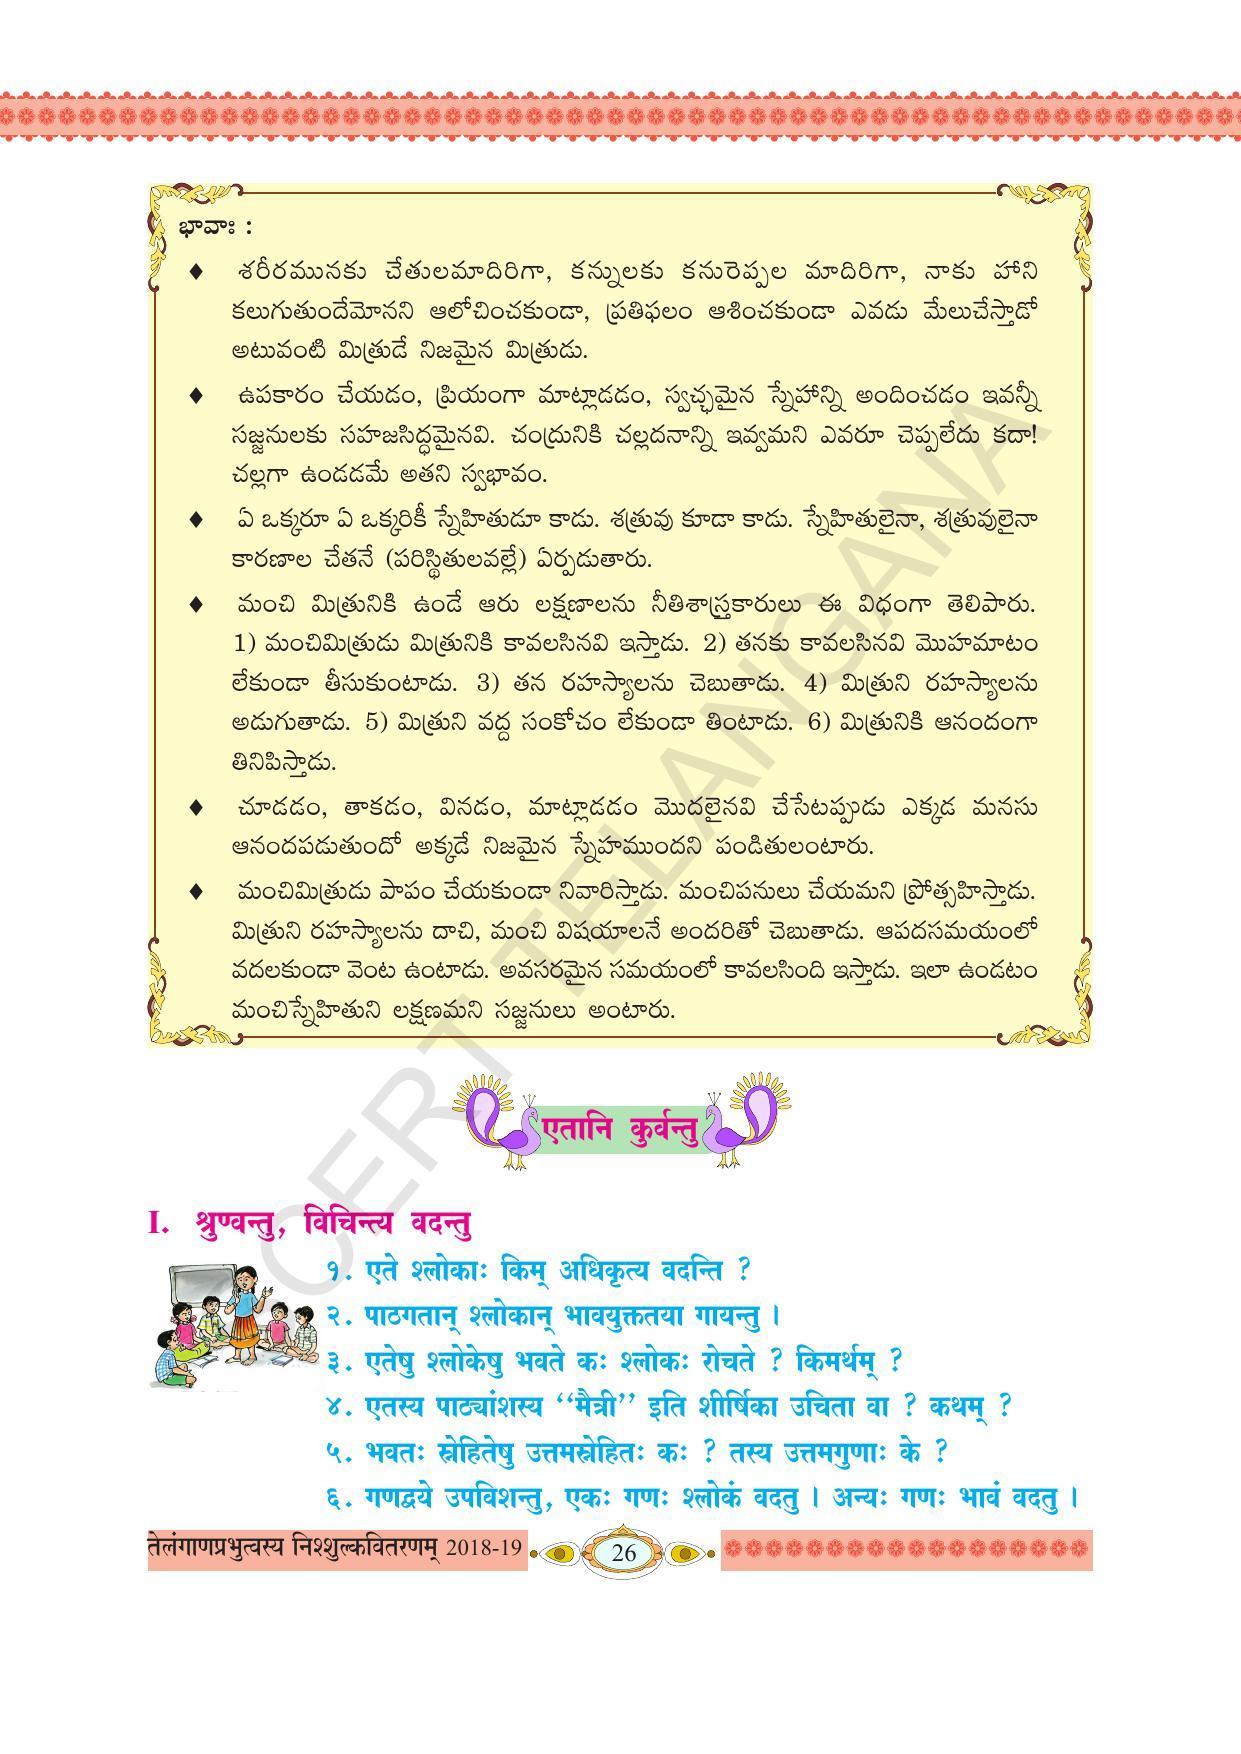 భావాః :
♦ శరీరమునకు చేతులమాదిరిగా, కన్నులకు కనురెప్పల మాదిరిగా, నాకు హాని
కలుగుతుందేమోనని ఆలోచించకుండా, ప్రతిఫలం ఆశించకుండా ఎవడు మేలుచేస్తాడో
అటువంటి మిత్రుడే నిజమైన మిత్రుడు.
♦ ఉపకారం చేయడం, ప్రియంగా మాట్లాడడం, స్వచ్ఛమైన స్నేహాన్ని అందించడం ఇవన్నీ
సజ్జనులకు సహజసిద్ధమైనవి. చంద్రునికి చల్లదనాన్ని ఇవ్వమని ఎవరూ చెప్పలేదు కదా!
చల్లగా ఉండడమే అతని స్వభావం.
♦ ఏ ఒక్కరూ ఏ ఒక్కరికీ స్నేహితుడూ కాడు. శత్రువు కూడా కాడు. స్నేహితులైనా, శత్రువులైనా
కారణాల చేతనే (పరిస్థితులవల్లే) ఏర్పడుతారు.
♦ మంచి మిత్రునికి ఉండే ఆరు లక్షణాలను నీతిశాస్త్రకారులు ఈ విధంగా తెలిపారు.
1) మంచిమిత్రుడు మిత్రునికి కావలసినవి ఇస్తాడు. 2) తనకు కావలసినవి మొహమాటం
లేకుండా తీసుకుంటాడు. 3) తన రహస్యాలను చెబుతాడు. 4) మిత్రుని రహస్యాలను
అడుగుతాడు. 5) మిత్రుని వద్ద సంకోచం లేకుండా తింటాడు. 6) మిత్రునికి ఆనందంగా
తినిపిస్తాడు.
♦ చూడడం, తాకడం, వినడం, మాట్లాడడం మొదలైనవి చేసేటప్పుడు ఎక్కడ మనసు
ఆనందపడుతుందో అక్కడే నిజమైన స్నేహముందని పండితులంటారు.
♦ మంచిమిత్రుడు పాపం చేయకుండా నివారిస్తాడు. మంచిపనులు చేయమని ప్రోత్సహిస్తాడు.
మిత్రుని రహస్యాలను దాచి, మంచి విషయాలనే అందరితో చెబుతాడు. ఆపదసమయంలో
వదలకుండా వెంట ఉంటాడు. అవసరమైన సమయంలో కావలసింది ఇస్తాడు. ఇలా ఉండటం
మంచిస్నేహితుని లక్షణమని సజ్జనులు అంటారు.
CERT TELANGANA
एतानि कुर्वन्तु
I. श्रुण्वन्तु, विचिन्त्य वदन्तु
१. एते श्लोकाः किम् अधिकृत्य वदन्ति ?
२. पाठगतान् श्लोकान् भावयुक्ततया गायन्तु ।
३. एतेषु श्लोकेषु भवते कः श्लोकः रोचते ? किमर्थम् ?
४. एतस्य पाठ्यांशस्य ‘‘मैत्री’’ इति शीर्षिका उचिता वा ? कथम् ?
५. भवतः स्नेहितेषु उत्तमस्नेहितः कः ? तस्य उत्तमगुणाः के ?
६. गणद्वये उपविशन्तु, एकः गणः श्लोकं वदतु । अन्यः गणः भावं वदतु ।
तेलंगाणप्रभुत्वस्य निश्शुल्कवितरणम् 2018-19
26